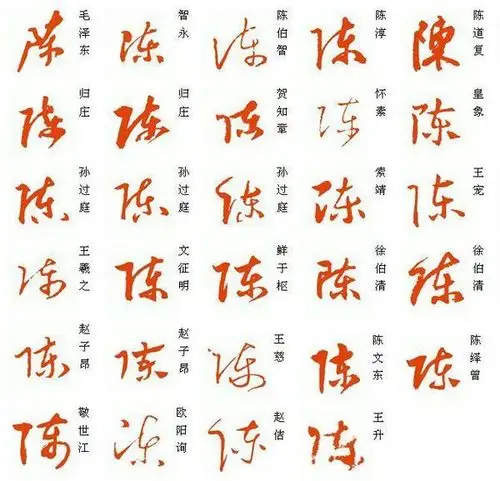 陈 毛泽东
陈 智永
陈 陈伯智
陈 陈淳
陳 陈道复
陈 归庄
陈 归庄
陈 贺知章
陈 怀素
陈 皇象
陈 孙过庭
陈 孙过庭
陈 孙过庭
陈 索靖
陈 王宠
陈 王羲之
陈 文征明
陈 鲜于枢
陈 徐伯清
陈 徐伯清
陈 赵子昂
陈 赵子昂
陈 王慈
陈 陈文东
陈 陈绎曾
陈 敬世江
陈 欧阳询
陈 赵佶
陈 王升